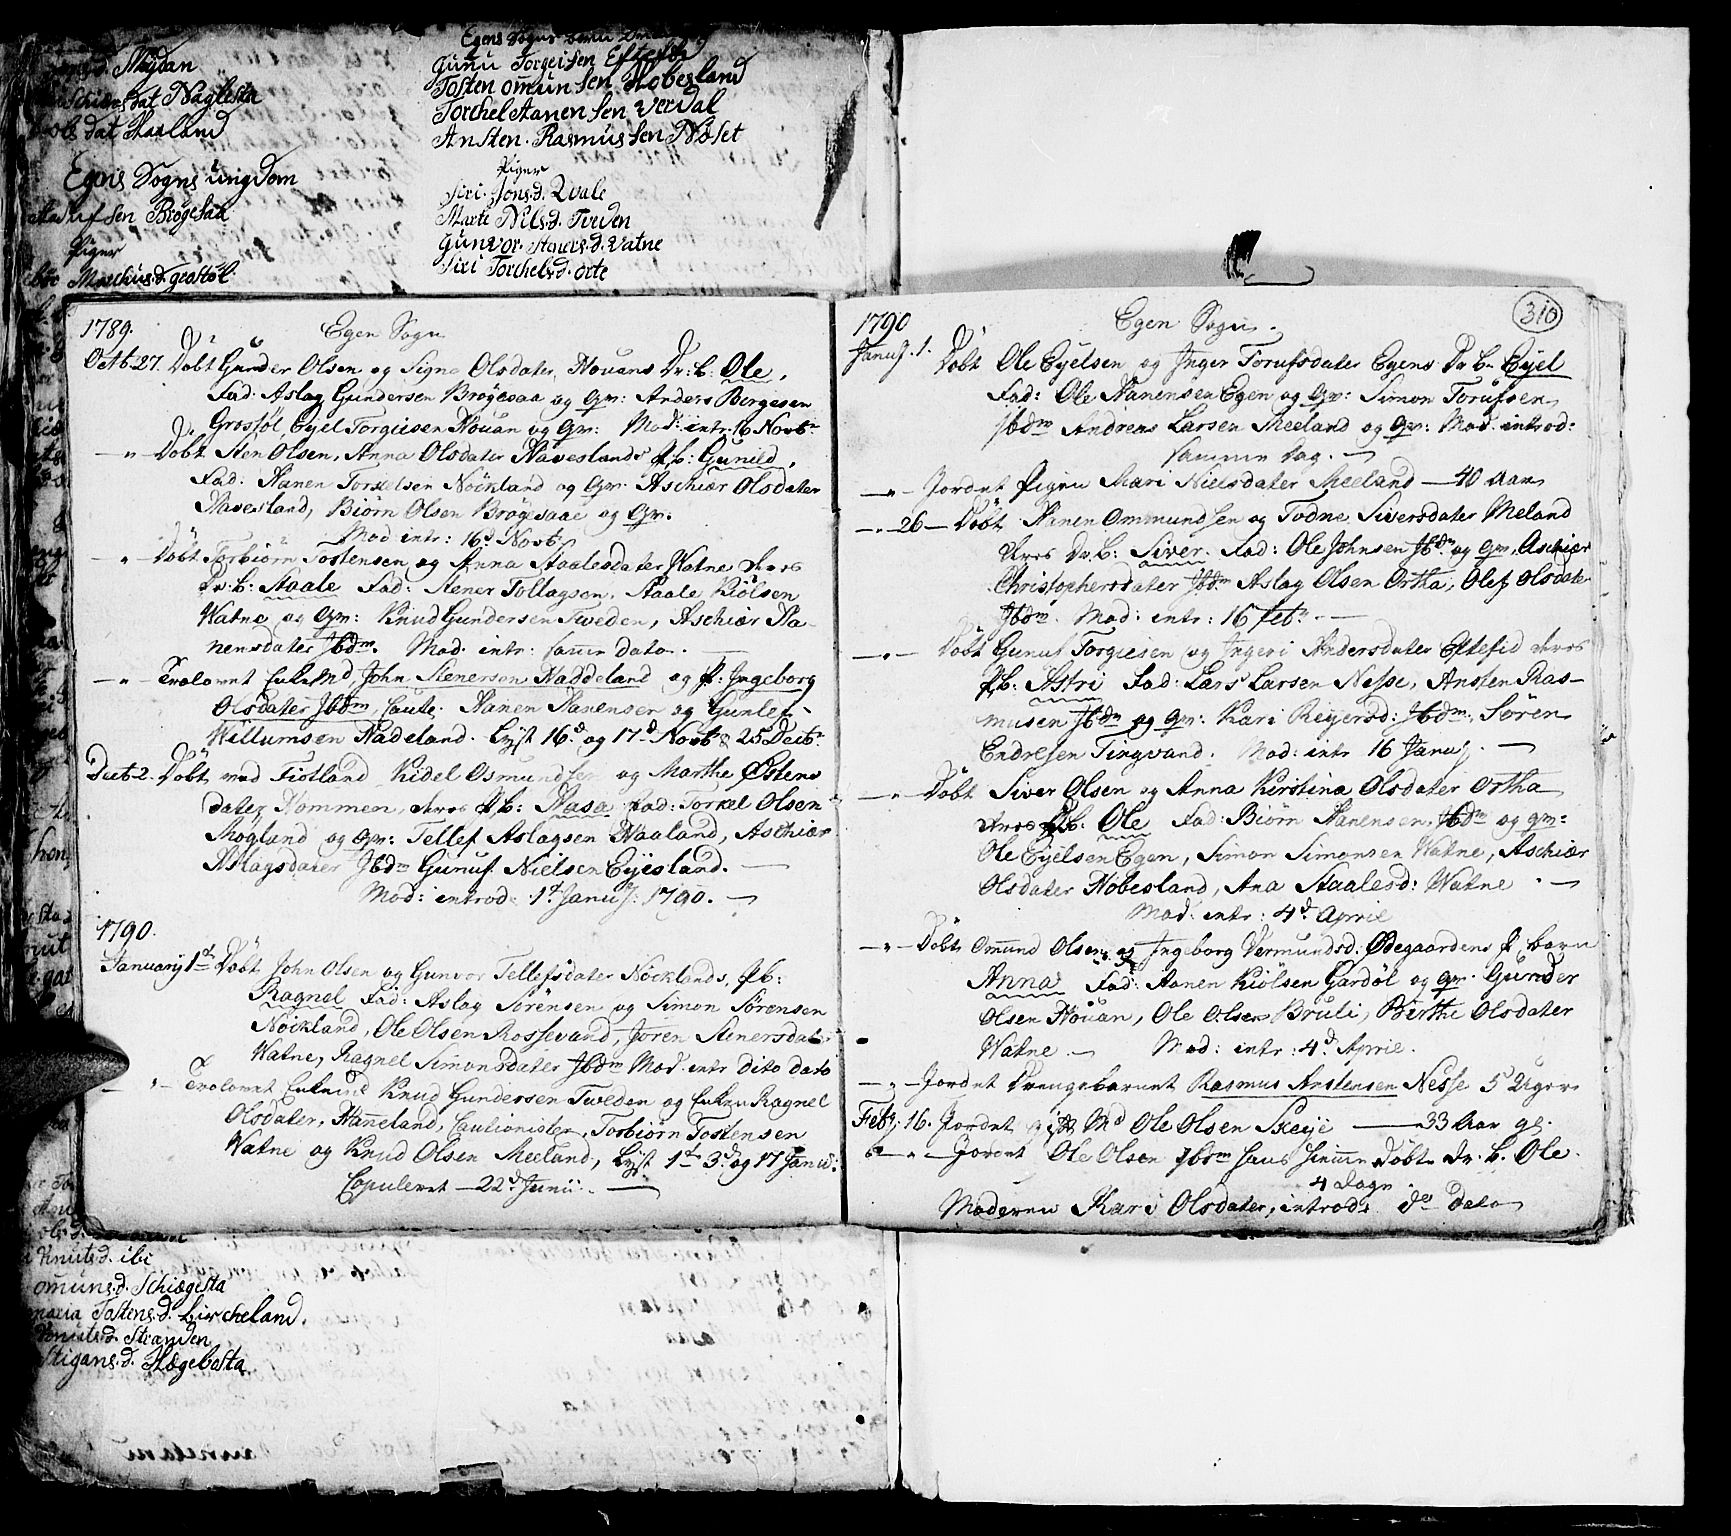 Møydan
Schiersdat Naglesta
olsdat Haaland
Egens Sogns ungdom
sen Brøgesaa
Piger
Marchusd. Grostøl
Egens Sogns
Gunu Torgeisen Eftestø
Tosten omunsen Hobesland
Torchel Aanensen Verdal
Ansten Rasmussen Nøset
Piger
Siri Jonsd. Qvale
Marte Nilsd. Tveden
Gunvor Steners.d. Vatne
Siri Torchelsd. orte
1789. Egen Sogn
Octb 27. Døbt Gunder Olsen og Signe Olsdater Houans Dr: b. Ole,
Fad: Aslag Gundersen Brøgesaa og Qv: Anders Bergesen
Grostøl Eyel Torgiesen Houan og Qv: Mod: intr: 16 Novb.
— " — Døbt Sten Olsen, Anna Olsdater Haveslands P. b: Gunild,
Fad: Aanen Torkelsen Nøckland og Qv: Aschiær Olsdater
Havesland, Biørn Olsen Brøgesaae og Qv:
Mod intr: 16d Novb.
— " Døbt Torbiørn Tostensen og Anna Staalesdater Watne deres
Dr: b: Staale Fad: Stener Tollagsen, Staale Kiølsen
Watne og Qv: Knud Gundersen Tweden, Aschiær Aa-
nensdater Ibdm. Mod: intr: samme dato. —
— " — Trolovet Enkemd John Stenersen Haddeland og P: Ingeborg
Olsdater Ibdm, Caute. Aanen Aanensen og Gunlef
Willumsen Hadeland. Lyst 16d og 17d Novb & 25 Decbr
Decb 2. Døbt ved Fiotland Kidel Osmundsen og Marthe Østens
dater Hommen, deres P. b: Aasa Fad: Torkel Olsen
Mogland og Qv: Tellef Aslagsen Haaland, Aschiær
Aslagsdater Ibdm Gunuf Nielsen Eyesland. —
Mod: introd: 1d Januj: 1790. —
1790.
January 1st Døbt John Olsen og Gunvor Tellefsdater Nøcklands, P b:
Ragnel Fad: Aslag Sørensen og Simon Sørensen
Nøckland, Ole Olsen Rossevand, Joren Stenersdater
Watne, Ragnel Simonsdater Ibdm Mod. intr dito dato
— " — Trolovet Enkemd Knud Gundersen Tweden og Enken Ragnel
Olsdater, Hanneland, Cautionister, Torbiørn Tostensen
Watne og Knud Olsen Meeland, Lyst 1st 3d og 17 Janu:
Copuleret — 22d Junii. —
1790 Egen Sogn. 310
Januj. 1. Døbt Ole Eyelsen og Inger Torufsdater Egens Dr b. Eyel
Fad: Ole Aanensen Egen og Qv: Simon Torufsen
Ibdm Andreas Larsen Meeland og Qv: Mod: introd:
samme dag. —
— " — Jordet Pigen Mari Nielsdater Meeland — 40 aar
— " 26 — Døbt Aanen Ommundsen og Todne Siversdater Meland
deres Dr. b: Siver. Fad: Ole Johnsen Ibdm og Qv, Aschiær
Christophersdater Ibdm Aslag Olsen Ortha, Olef Olsdater
Ibdm. Mod: intr: 16 Feb. —
— " — Døbt Gunuf Torgiesen og Ingeri Andersdater Eftestid deres
P. b: Astri Fad: Lars Larsen Nesse, Ansten Ras-
musen Ibdm og Qv: Kari Reyersd: Ibdm, Søren
Endresen Tingvand. Mod: intr 16 Januj. —
— " — Døbt Siver Olsen og Anna Kirstina Olsdater Ortha
deres b. Ole Fad: Biørn Aanensen, Ibdm og qv:
Ole Eyelsen Egen, Simon Simonsen Watne, Aschiær
Olsdater Høbesland, Ana Staalesd: Watne. —
Mod: intr: 4d April
— " — Døbt Omund Olsen og Ingeborg Vermundsd: Ødegaardens P. barn
Anna Fad: Aanen Kiølsen Gardøl og qv. Gunder
Olsen Houan, Ole Olsen Bruli, Birthe Olsdater
Watne — Mod: intr: 4d April.
— " — Jordet Drengebarnet Rasmus Anstensen Nesse 5 Uger
Feb: 16. Jordet gift Md Ole Olsen Skeye — 33 Aar gl.
— " — Jordet Ole Olsen Ibdm hans hiemme Døbte Dr. b. Ole.
4 Dage
Moderen Kari Olsdater, introd: do dato
Knutsd. ibi
omuns.d. Schiægesta
maria Tostens.d. Lircheland.
Knuts.d. Stranden
Stigans.d. Hægebosta